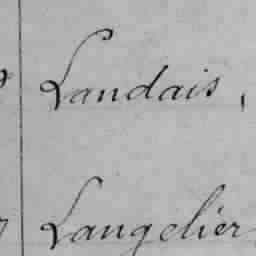 Landais,
Langelier